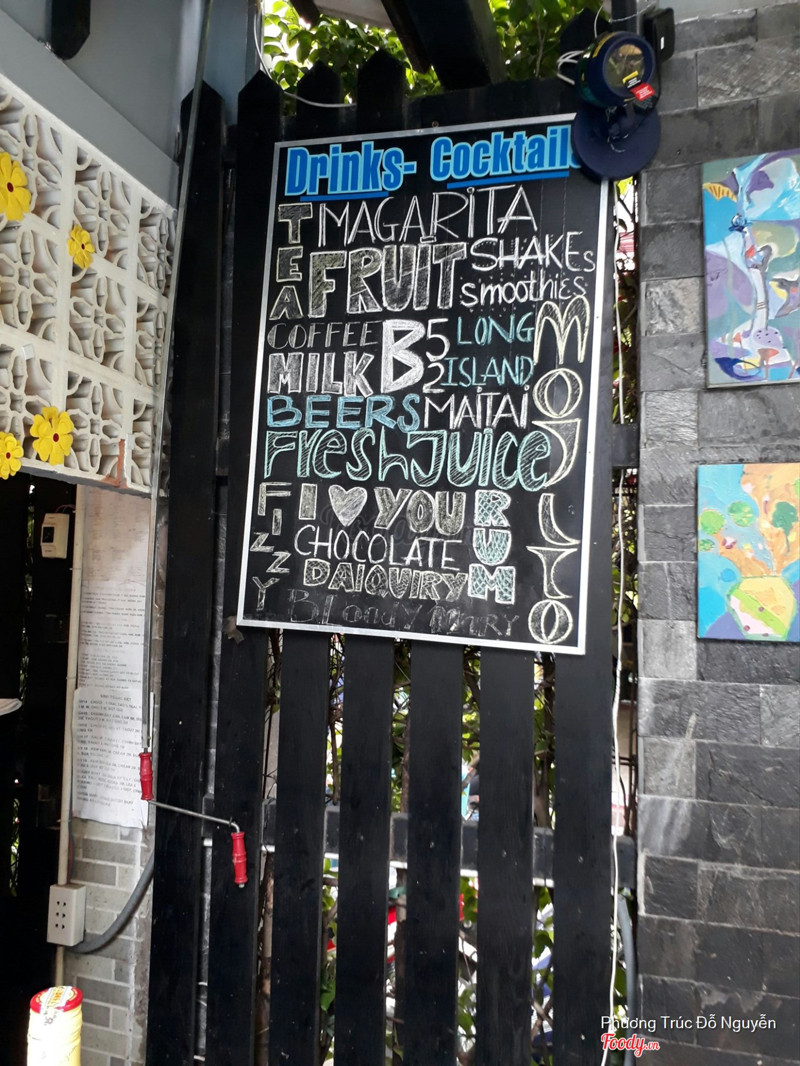 Drinks- Cocktail
TEA
MAGARITA
FRUIT
SHAKES
smoothies
COFFEE
MILK
B52
LONG
ISLAND
MOJITO
BEERS
MAITAI
Fresh JUICE
FIZZY
I ♥ YOU
RUM
CHOCOLATE
DAIQUIRY
BLOODY MARY
Phương Trúc Đỗ Nguyễn
Foody.vn